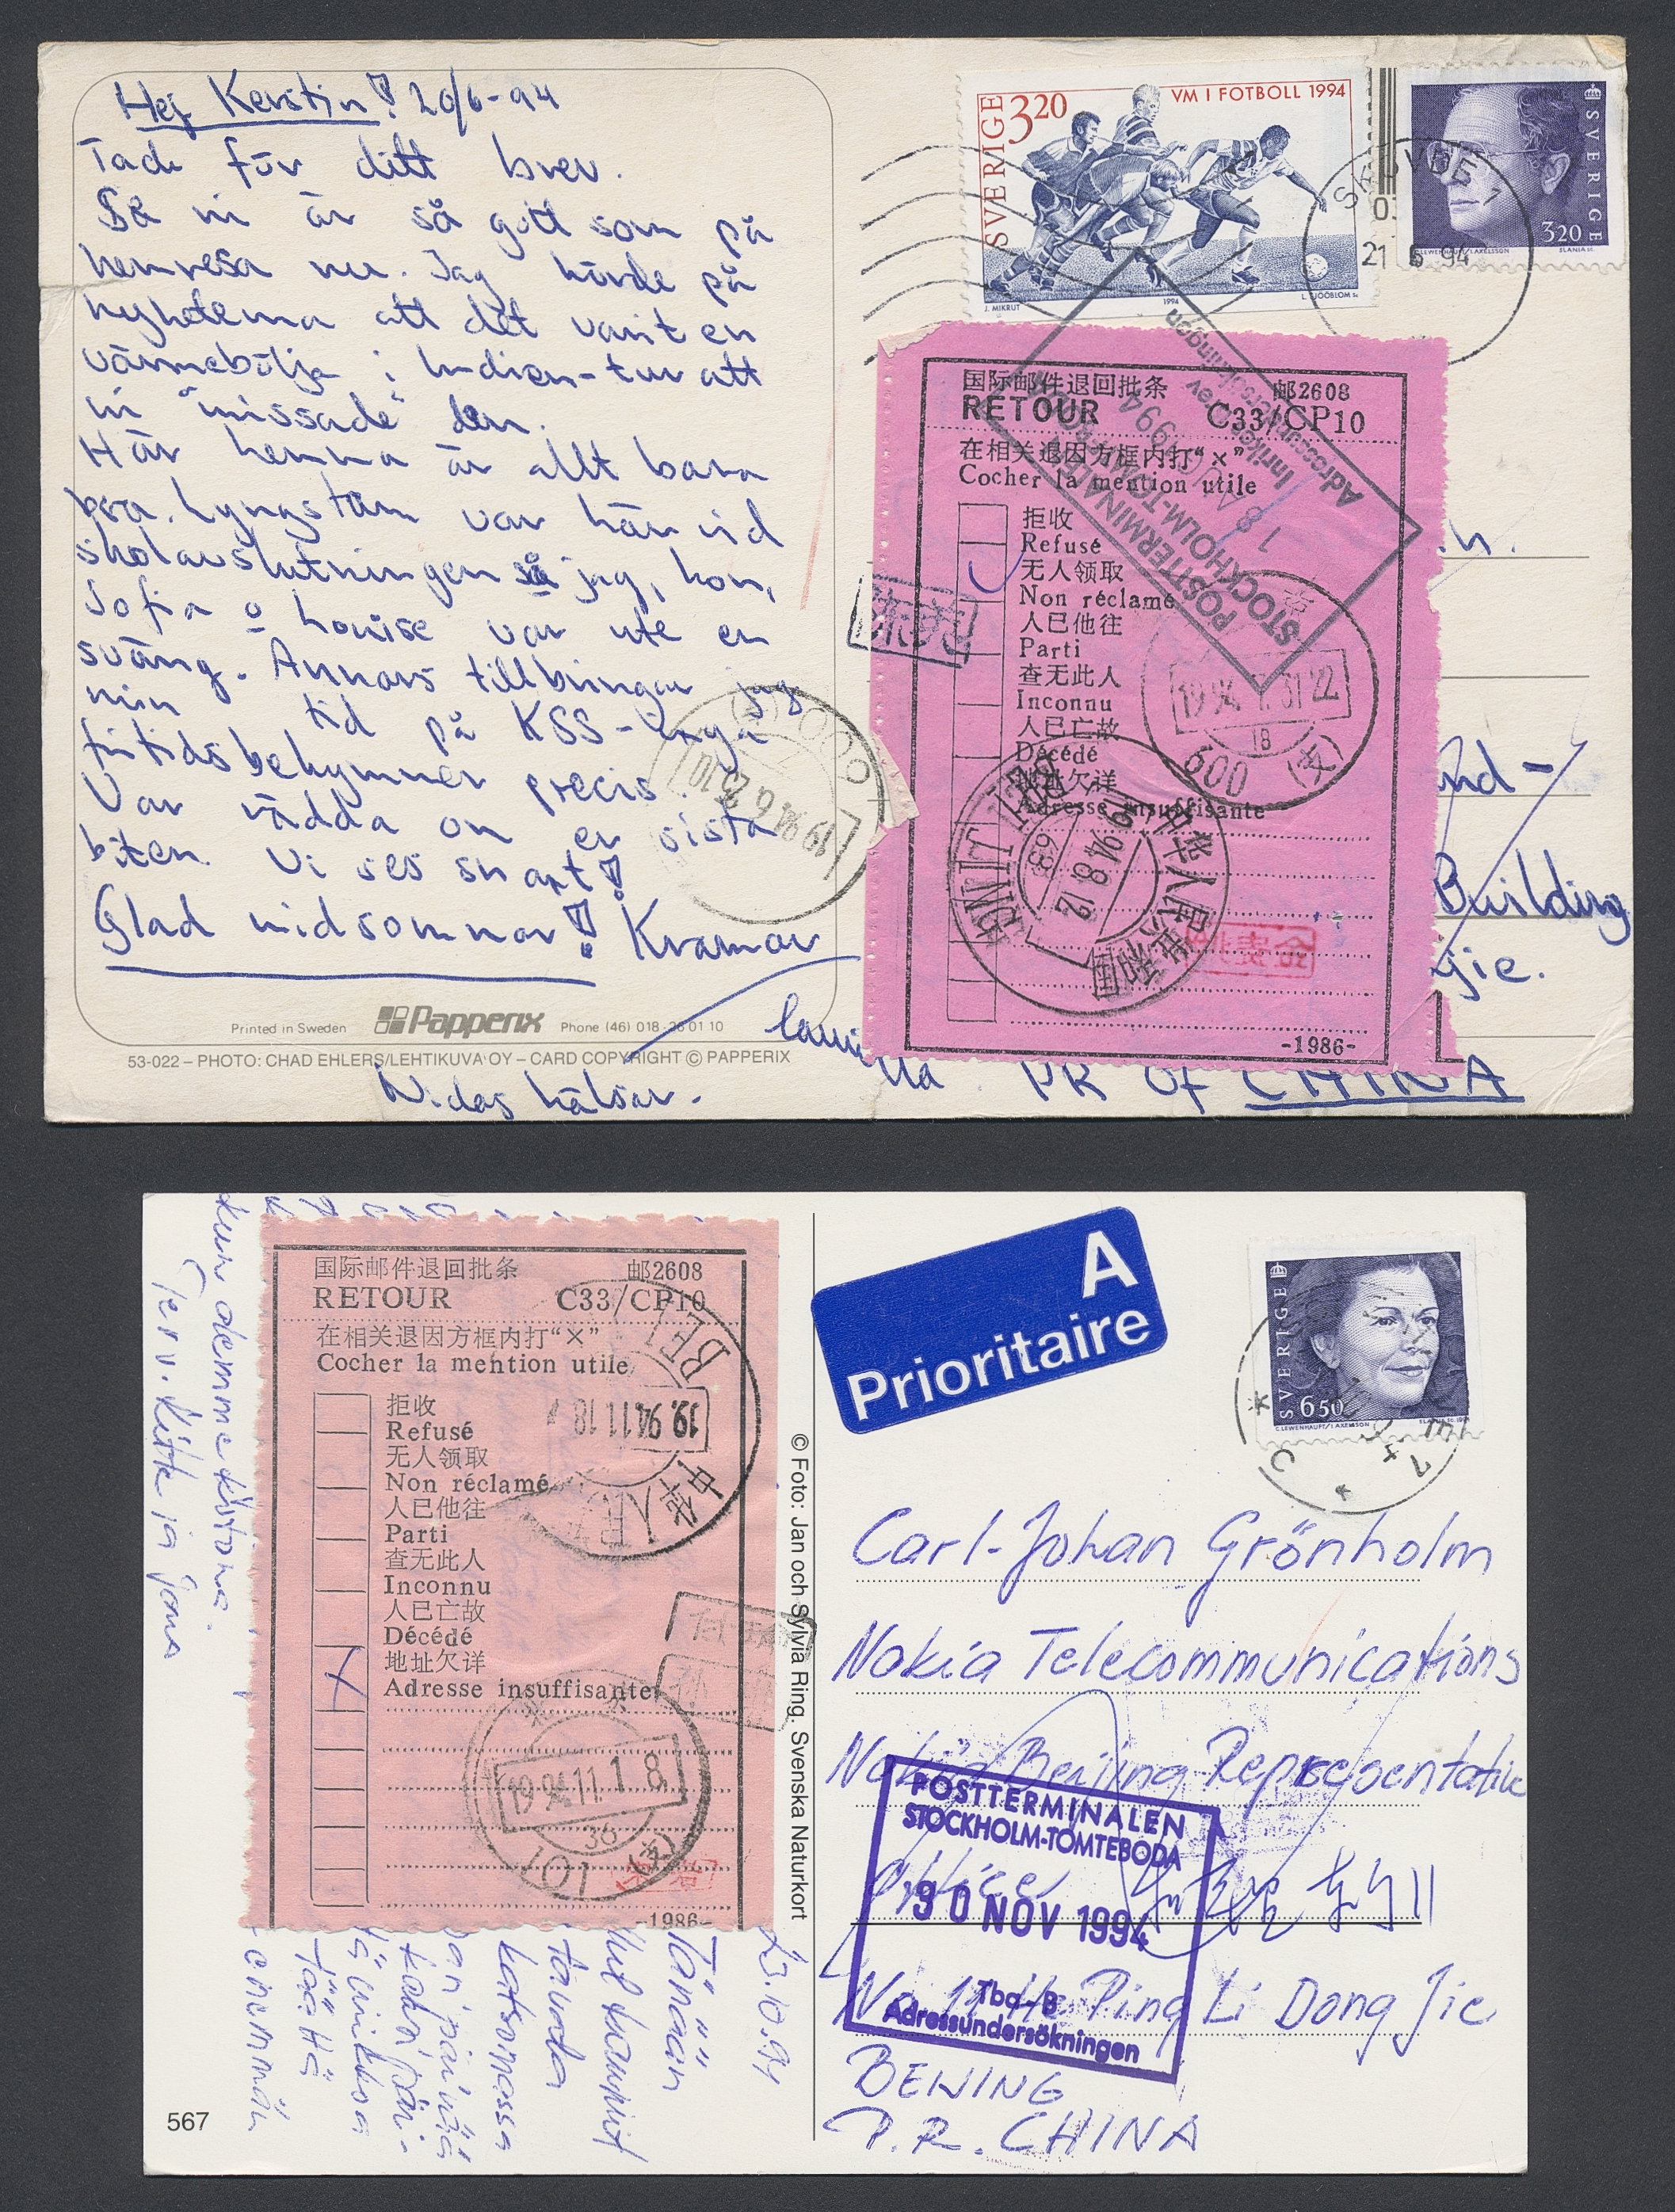 Hej Kerstin! 20/6-94
Tack för ditt brev.
Så ni är så gott som på
hemresa nu. Jag hörde på
nyheterna att det varit en
värmebölja i Indien - tur att
ni "missade" den.
Här hemma är allt bara
bra. Lyngstam var här vid
skolavslutningen så jag, hon,
Sofia o Louise var ute en
sväng. Annars tillbringar jag
min tid på KSS - inga
fritidsbekymmer precis.
Var rädda om er sista
biten. Vi ses snart!
Glad midsommar! Kramar
Camilla
Nidas hälsar.
Printed in Sweden Papperix Phone (46) 018-26 01 10
53-022 – PHOTO: CHAD EHLERS/LEHTIKUVA OY – CARD COPYRIGHT © PAPPERIX
SVERIGE 320
VM I FOTBOLL 1994
J. MIKRUT 1994 L. SJÖÖBLOM Sc
SVERIGE
3 20
SLANIA SC.
SKÖVDE 1
21 6 94
国际邮件退回批条 邮2608
RETOUR C33/CP10
在相关退因方框内打“×”
Cocher la mention utile
拒收
Refusé
无人领取
Non réclamé
人已他往
Parti
查无此人
Inconnu
人已亡故
Décédé
地址欠详
Adresse insuffisante
-1986-
POSTTERMINALEN
STOCKHOLM-TOMTEBODA
1994
Adressundersökningen
1994.7.31.22
18
600 (支)
中华人民共和国
94.8.12
BEIJING
1994.6.25.10
nd-
Building
jie.
PR of CHINA
国际邮件退回批条 邮2608
RETOUR C33/CP10
在相关退因方框内打“×”
Cocher la mention utile
拒收
Refusé
无人领取
Non réclamé
人已他往
Parti
查无此人
Inconnu
人已亡故
Décédé
地址欠详
Adresse insuffisante
-1986-
BEI
19.94.11.18
中华人民
1994.11.18
36
101 (支)
23.10.94
Tänään
kuin olemme kotona.
Terv. Kitte ja Jans
567
© Foto: Jan och Sylvia Ring. Svenska Naturkort
A
Prioritaire
SVERIGE
6 50
Carl-Johan Grönholm
Nokia Telecommunications
Nokia Beijing Representative
Office
No 11 He Ping Li Dong Jie
BEIJING
P.R. CHINA
POSTTERMINALEN
STOCKHOLM-TOMTEBODA
30 NOV 1994
Tba-B
Adressundersökningen